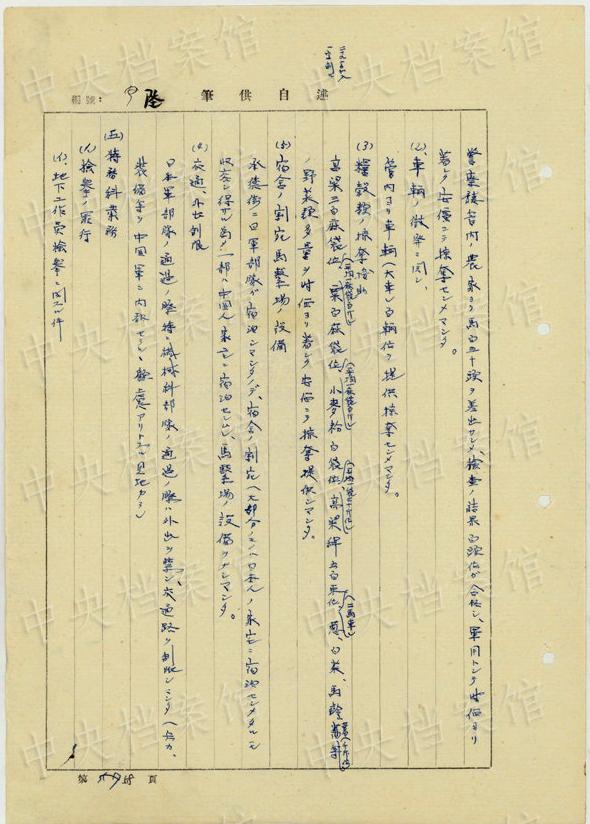 編號:
筆供自述
警察署管内ノ農家ヨリ馬百五十頭ヲ差出サシメ、検査ノ結果百頭位ガ合格シ、軍用トシテ時価ヨリ
著シク安價ニテ掠奪セシメマシタ。
(2)、車輌ノ徴発ニ関シ、
管内ヨリ車輌(大車)百輌位ヲ提供掠奪セシメマシタ。
(3) 糧穀類ノ掠奪
高梁三百麻袋位、粟百麻袋位、小麦粉百袋位、高梁稈五百束位、葱、白菜、馬鈴薯等
ノ野菜類多量ヲ時価ヨリ著シク安価ニテ掠奪提供シマシタ。
宿舎ノ割宛馬繋場ノ設備
承徳街ニ日軍部隊ガ宿泊シマシタノデ、宿舎ノ割宛(大部分ノモノハ日本人ノ家宅ニ宿泊セシメタルモ
収容シ得ザル為メ一部ハ中国人家宅ニ宿泊セシム)、馬繋場ノ設備ヲナシマシタ。
交通、外出制限
日本軍部隊ノ通過ノ際特ニ機械科部隊ノ通過ノ際ハ外出ヲ禁シ、交通路ヲ制限シマシタ(兵力、
装備等ヲ中国軍ニ内報セラルヽ憂慮アリトスル見地カラ)
(五) 特務科業務
(1) 検挙ノ罪行
(イ)、地下工作員検挙ニ関スル件
第 頁
中央档案馆